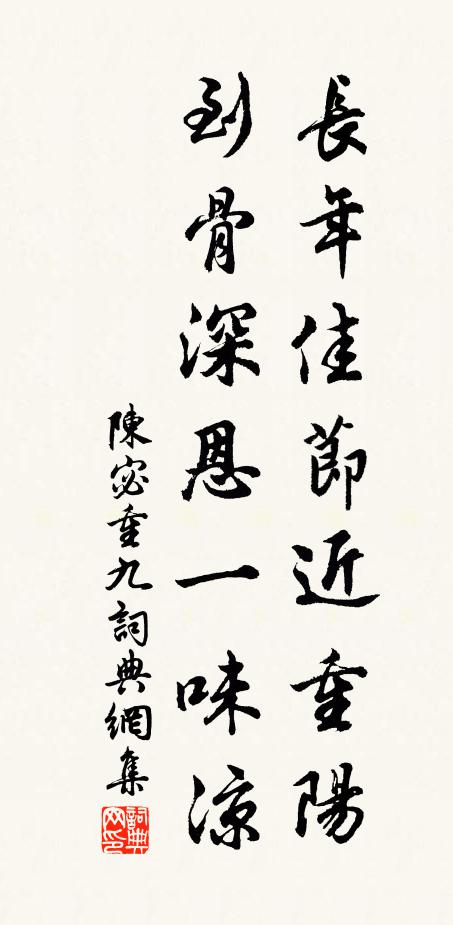 長年佳節近重陽
到骨深恩一味涼
陳宓重九詞典網集
詞典網印